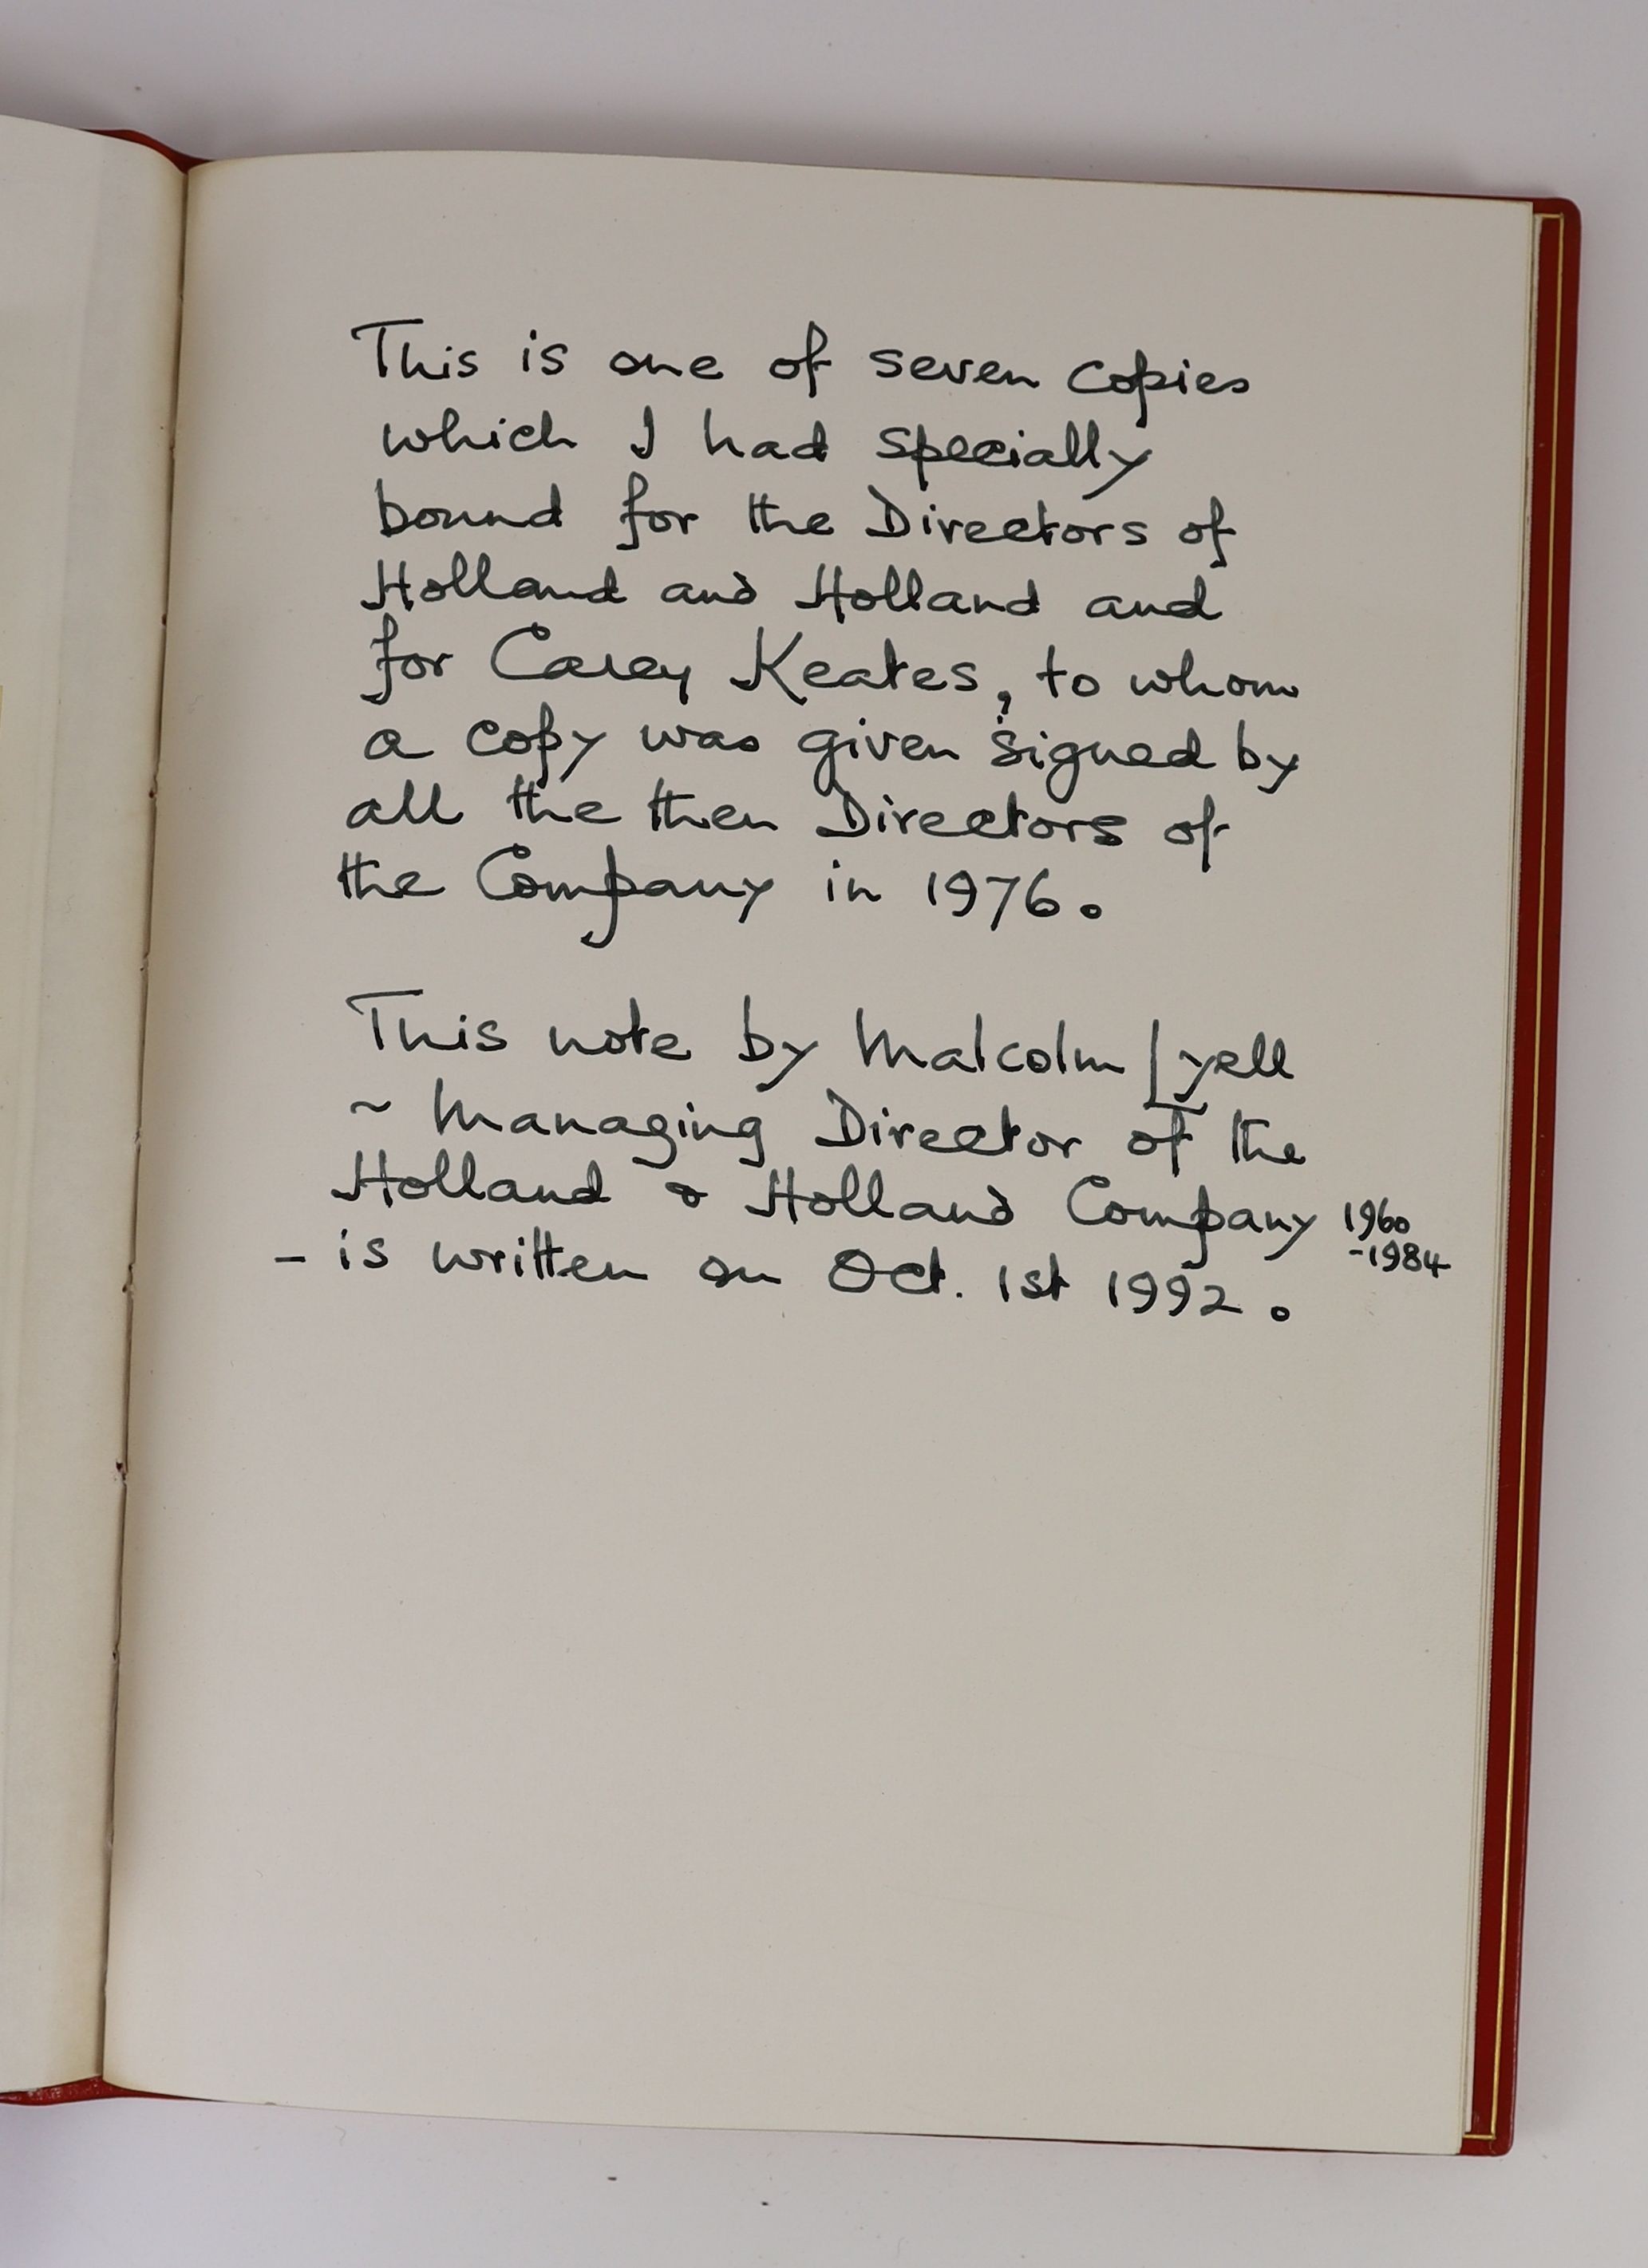 This is one of seven copies
which I had specially
bound for the Directors of
Holland and Holland and
for Carey Keates, to whom
a copy was given signed by
all the then Directors of
the Company in 1976.
This note by Malcolm Lyell
~ Managing Director of the
Holland & Holland Company 1960
-1984
- is written on Oct. 1st 1992.